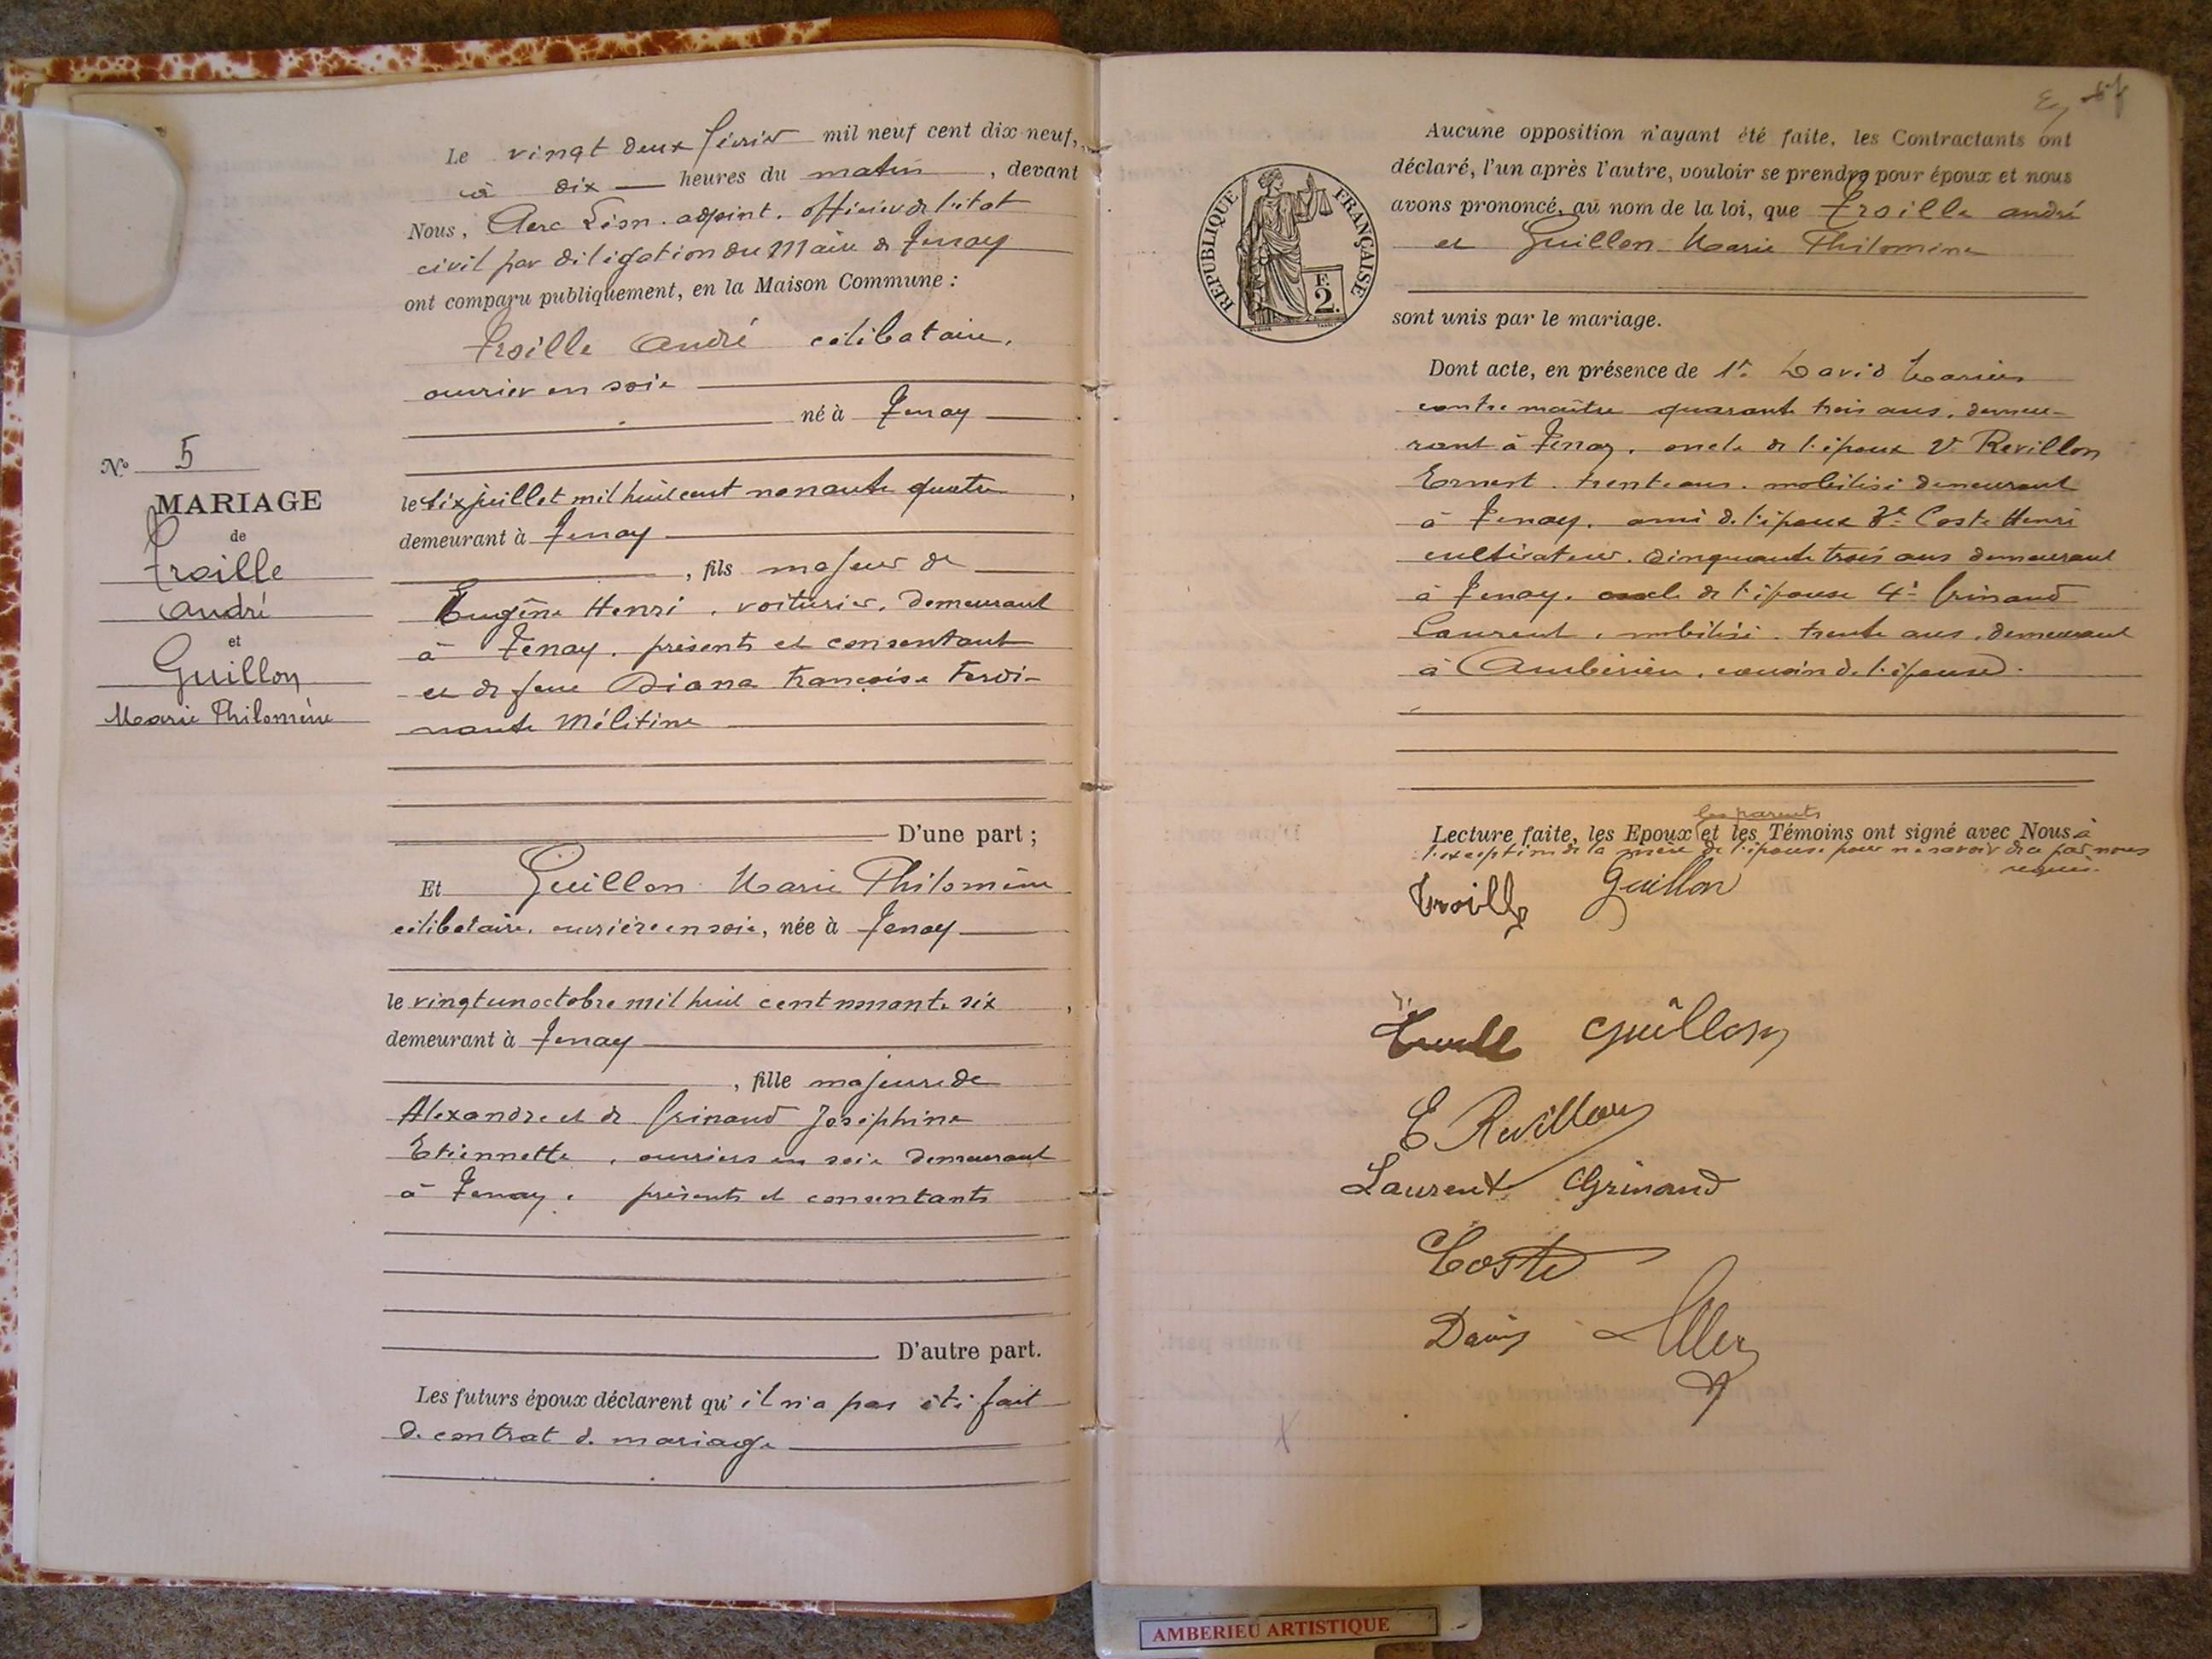 Le vingt deux février mil neuf cent dix-neuf,
à dix heures du matin, devant
Nous, Léon. adjoint. officier de l'état
civil par délégation du Maire de Tenay
ont comparu publiquement, en la Maison Commune :
Troille André célibataire,
ouvrier en soie
né à Tenay
N° 5
MARIAGE
de
Troille
André
et
Guillon
Marie Philomène
le six juillet mil huit cent nonante quatre,
demeurant à Tenay
, fils majeur de
Eugène Henri, voiturier, demeurant
à Tenay, présent et consentant
et de feue Diana Françoise Ferdi-
nante Mélitine
D'une part ;
Et Guillon Marie Philomène
célibataire, ouvrière en soie, née à Tenay
le vingt un octobre mil huit cent nonante six,
demeurant à Tenay
, fille majeure de
Alexandre et de Grinand Joséphine
Etiennette, ouvriers en soie demeurant
à Tenay, présents et consentants
D'autre part.
Les futurs époux déclarent qu'il n'a pas été fait
de contrat de mariage
Aucune opposition n'ayant été faite, les Contractants ont
déclaré, l'un après l'autre, vouloir se prendre pour époux et nous
avons prononcé, au nom de la loi, que Troille André
et Guillon Marie Philomène
REPUBLIQUE FRANÇAISE
F.
2.
sont unis par le mariage.
Dont acte, en présence de 1° David Marius
contremaître quarante trois ans, demeu-
rant à Tenay, oncle de l'époux 2° Revillon
Ernest. trente ans. mobilisé demeurant
à Tenay, ami de l'époux 3° Coste Henri
cultivateur. cinquante trois ans demeurant
à Tenay. oncle de l'épouse 4° Grinand
Laurent, mobilisé. trente ans, demeurant
à Ambérieu, cousin de l'épouse.
les parents
Lecture faite, les Epoux et les Témoins ont signé avec Nous à
l'exception de la mère de l'épouse pour ne savoir de ce par nous
requis.
Troille Guillon
Guillon
E Revillon
Laurent Grinand
Coste
David
AMBERIEU ARTISTIQUE